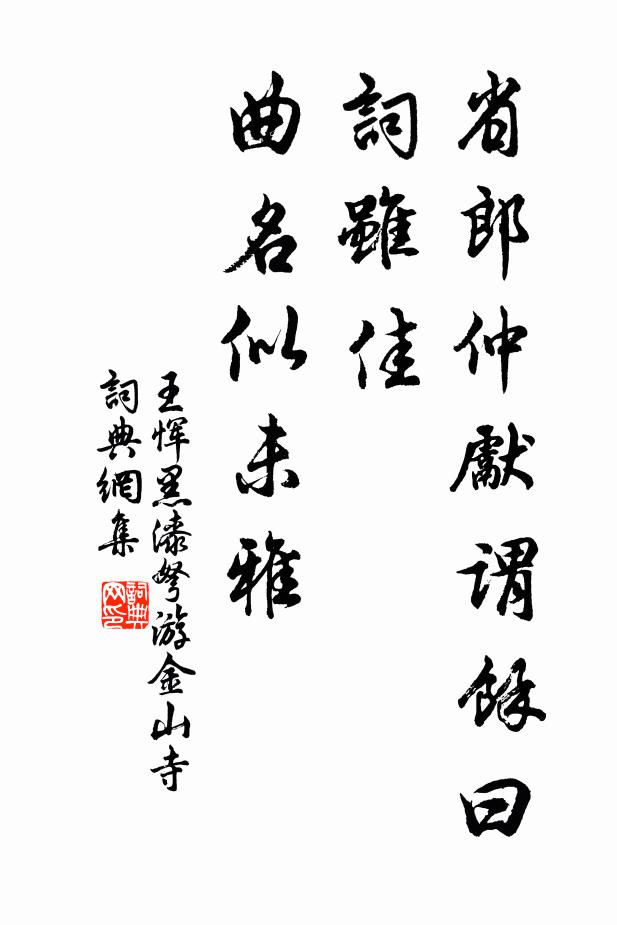 省郎仲獻謂餘曰
詞雖佳
曲名似未雅
王惲黑漆弩游金山寺
詞典網集
詞典网印